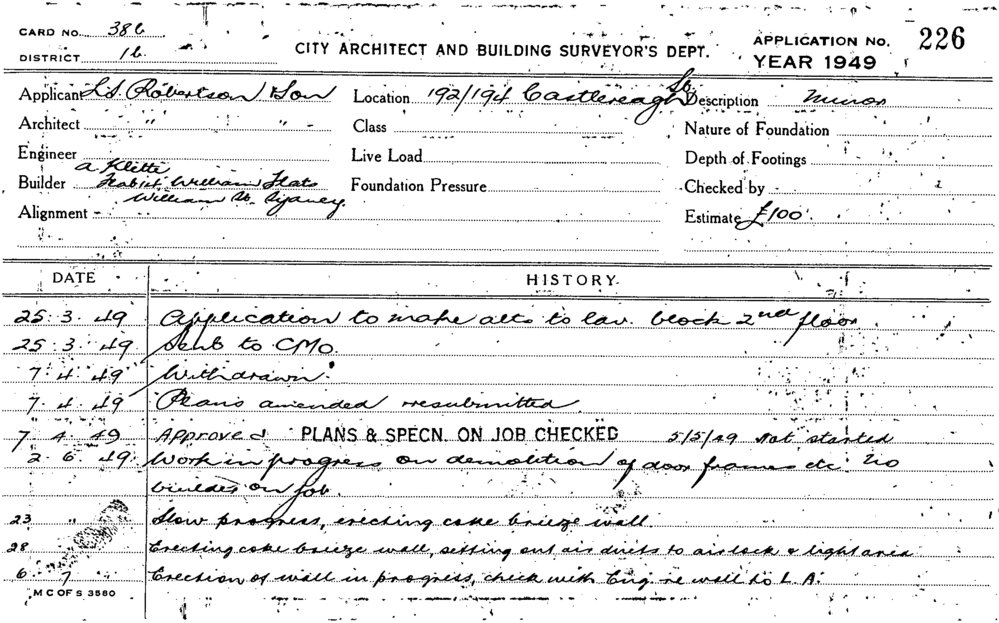 CARD NO. 386
DISTRICT 16
CITY ARCHITECT AND BUILDING SURVEYOR'S DEPT.
APPLICATION NO. 226
YEAR 1949
Applicant L.S. Robertson & Son Location 192/194 Castlereagh St Description Minor
Architect " " - Class Nature of Foundation
Engineer Live Load Depth of Footings
A. Klette
Builder William Flats Foundation Pressure Checked by
William St. Sydney.
Alignment Estimate £100
DATE HISTORY
25.3.49 Application to make alts to lav. block 2nd floor
25.3.49 Sent to CMO.
7.4.49 Withdrawn.
7.4.49 Plans amended resubmitted
7.4.49 Approved PLANS & SPECN. ON JOB CHECKED 5/5/49 Not started
2.6.49 Work in progress on demolition of door frames etc. No
builder on job.
23 " Slow progress, erecting coke breeze wall.
28 Erecting coke breeze wall, setting out air ducts to airlock & light area
6 7 Erection of wall in progress, check with Eng. re wall to L.A.
M C OF S 3580